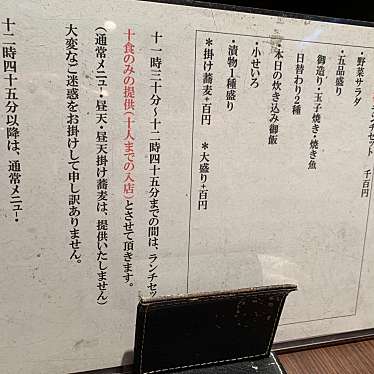 ンチセット 千百円
・野菜サラダ
・五品盛り
御造り・玉子焼き・焼き魚
日替わり2種
・本日の炊き込み御飯
・小せいろ
・漬物1種盛り
*掛け蕎麦+百円 *大盛り+百円
十一時三十分~十二時四十五分までの間は、ランチセッ
十食のみの提供(十人までの入店)とさせて頂きます。
(通常メニュー・昼天・昼天掛け蕎麦は、提供いたしません)
大変なご迷惑をお掛けして申し訳ありません。
十二時四十五分以降は、通常メニュー・